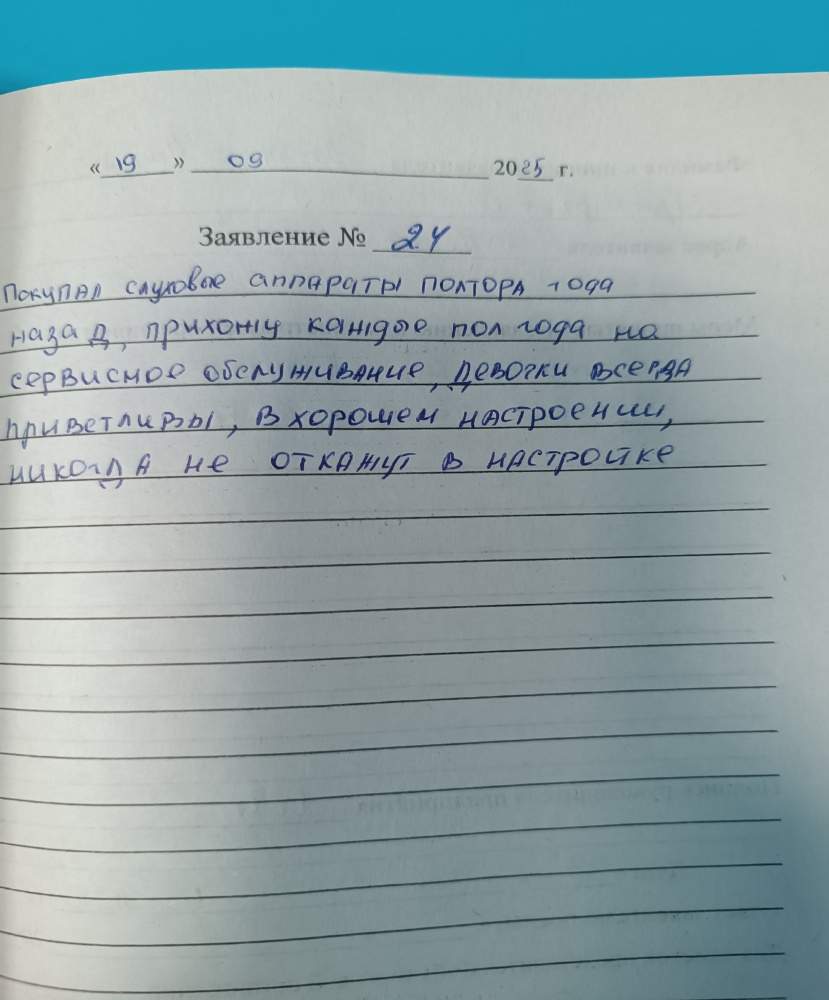 « 19 » 09 2025 г.
Заявление № 24
Покупал слуховые аппараты полтора года
назад, прихожу каждые пол года на
сервисное обслуживание, девочки всегда
приветливы, в хорошем настроении,
никогда не откажут в настройке